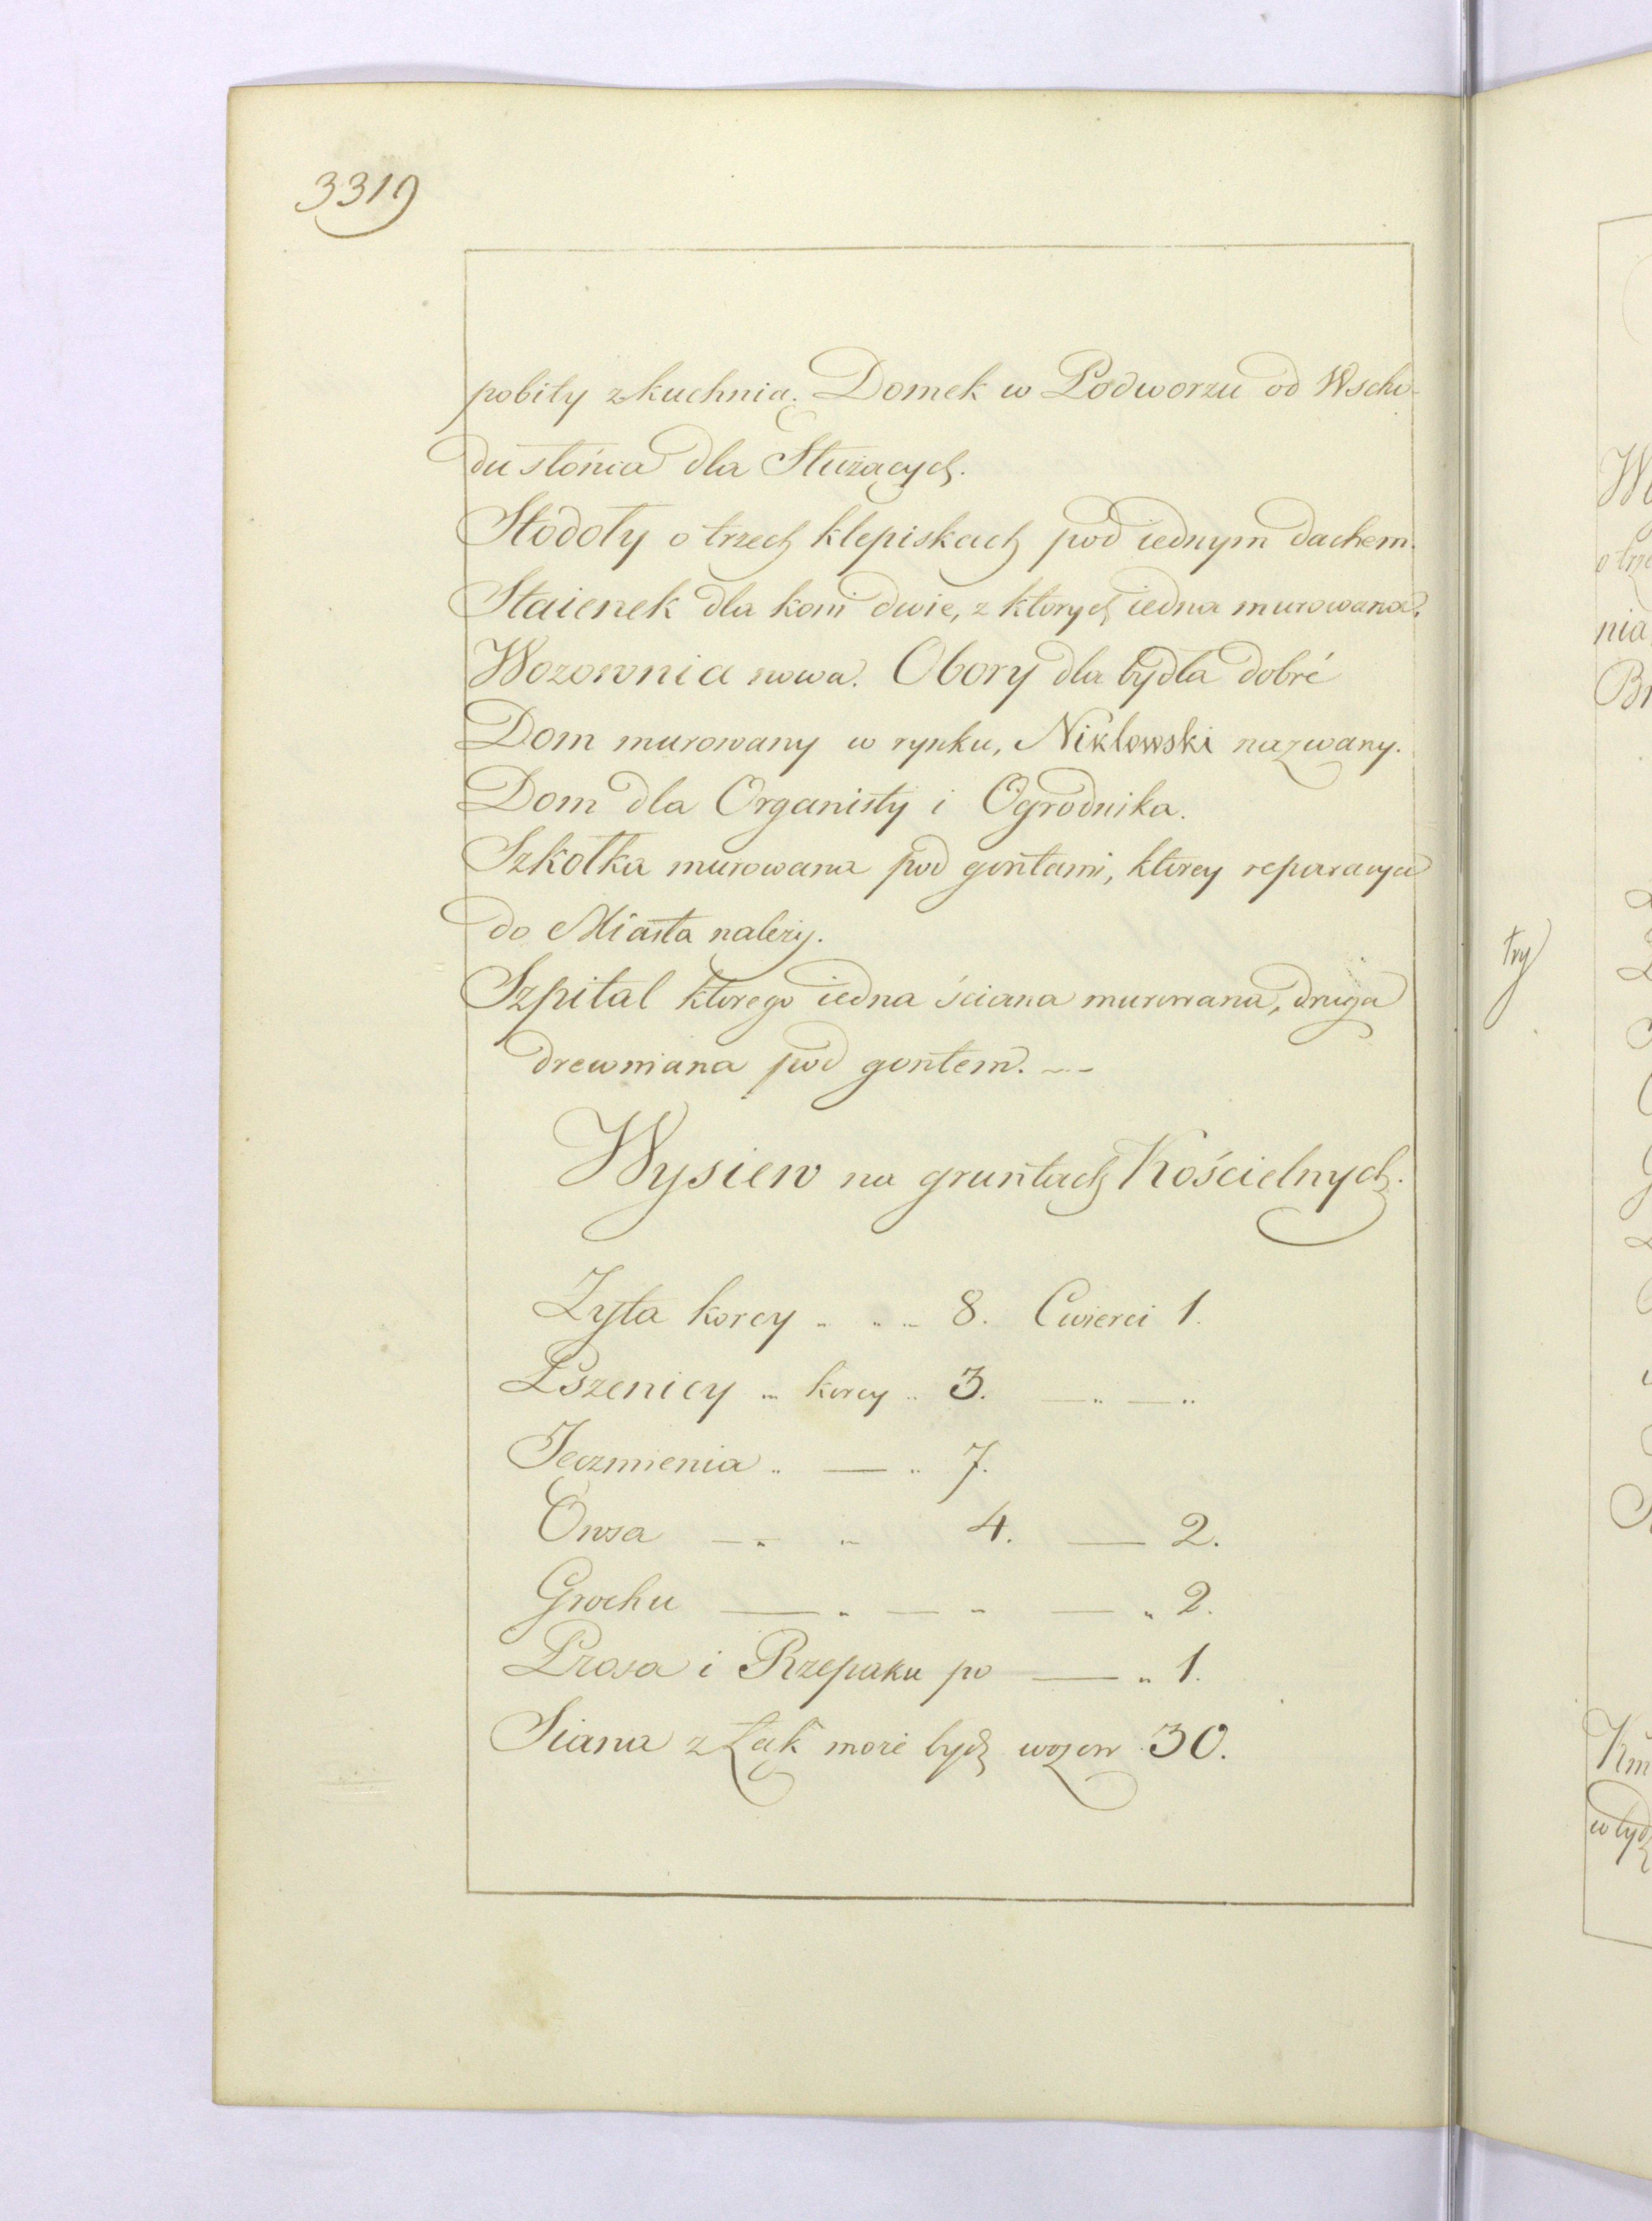 3319
pobity z kuchnią. Domek w Podworzu od Wscho-
du słońca dla Służących.
Stodoły o trzech klepiskach pod iednym dachem.
Staienek dla koni dwie, z ktorych iedna murowana.
Wozownia nowa. Obory dla bydła dobré
Dom murowany w rynku, Niklowski nazwany.
Dom dla Organisty i Ogrodnika.
Szkołka murowana pod gontami, ktorey reparacya
do Miasta należy.
Szpital ktorego iedna ściana murowana, druga
drewniana pod gontem. —
Wysiew na gruntach Kościelnych.
Zyta korcy .. .. .. 8. Cwierci 1.
Pszenicy .. korcy .. 3. — .. — ..
Jęczmienia .. — .. 7.
Owsa — .. .. 4. — 2.
Grochu — .. — .. — .. 2.
Prosa i Rzepaku po — .. 1.
Siana z Łąk może bydź wozow 30.
try